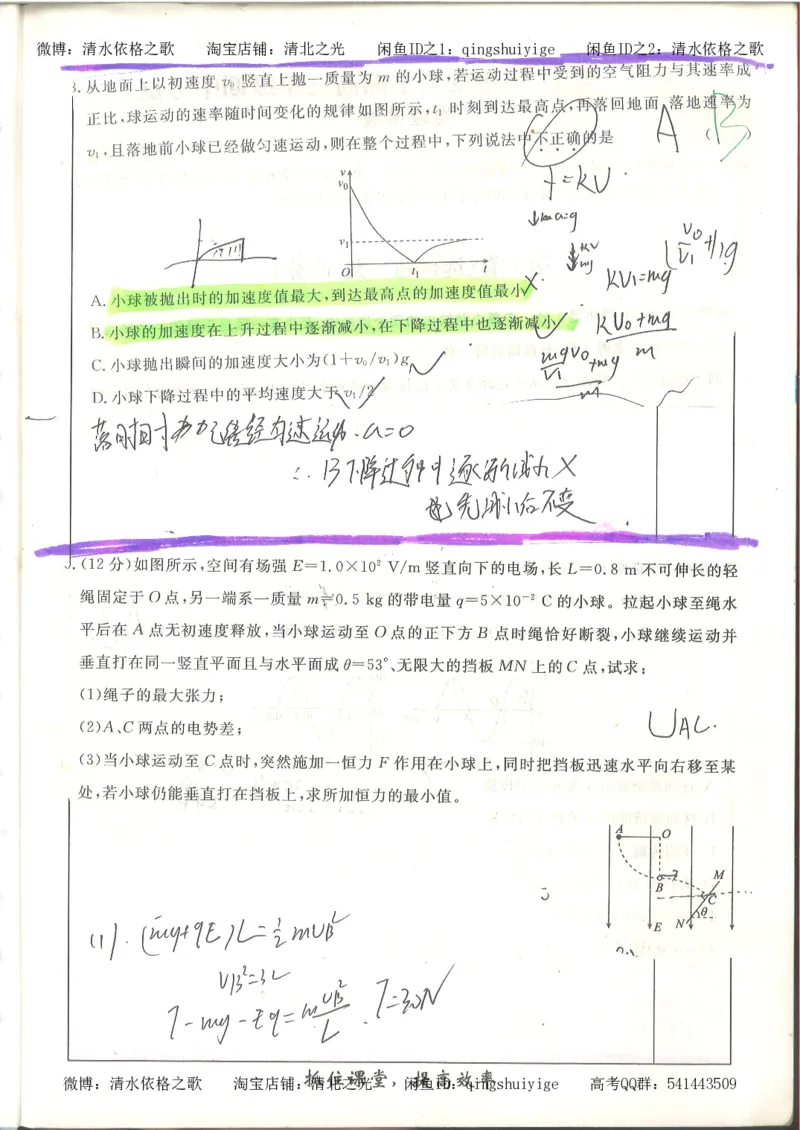 微博：清水依格之歌 淘宝店铺：清北之光 闲鱼ID之1：qingshuiyige 闲鱼ID之2：清水依格之歌
3.从地面上以初速度 v₀ 竖直上抛一质量为 m 的小球,若运动过程中受到的空气阻力与其速率成
正比,球运动的速率随时间变化的规律如图所示,t₁ 时刻到达最高点,再落回地面,落地速率为
v₁,且落地前小球已经做匀速运动,则在整个过程中,下列说法中不正确的是 ( B )
A
f=kv
v
v₀
v₁
O
t₁
t
kv
mg
kv₁=mg
A.小球被抛出时的加速度值最大,到达最高点的加速度值最小 ×
B.小球的加速度在上升过程中逐渐减小,在下降过程中也逐渐减小 ✓
kv₀+mg
m
C.小球抛出瞬间的加速度大小为(1+v₀/v₁)g ✓
D.小球下降过程中的平均速度大于 v₁/2 ✓
∴ B下降过程中逐渐减小 ×
先减小后不变
(12 分)如图所示,空间有场强 E=1.0×10² V/m 竖直向下的电场,长 L=0.8 m 不可伸长的轻
绳固定于 O 点,另一端系一质量 m=0.5 kg 的带电量 q=5×10⁻² C 的小球。拉起小球至绳水
平后在 A 点无初速度释放,当小球运动至 O 点的正下方 B 点时绳恰好断裂,小球继续运动并
垂直打在同一竖直平面且与水平面成 θ=53°、无限大的挡板 MN 上的 C 点,试求:
(1)绳子的最大张力;
(2)A、C 两点的电势差;
UAC
(3)当小球运动至 C 点时,突然施加一恒力 F 作用在小球上,同时把挡板迅速水平向右移至某
处,若小球仍能垂直打在挡板上,求所加恒力的最小值。
A
O
B
M
C
θ
E
N
(1). (mg+qE)L=½mvB²
T-mg-Eq=m vB²/L . T=30N
抓住课堂，提高效率
微博：清水依格之歌 淘宝店铺：清北之光 闲鱼ID：qingshuiyige 高考QQ群：541443509